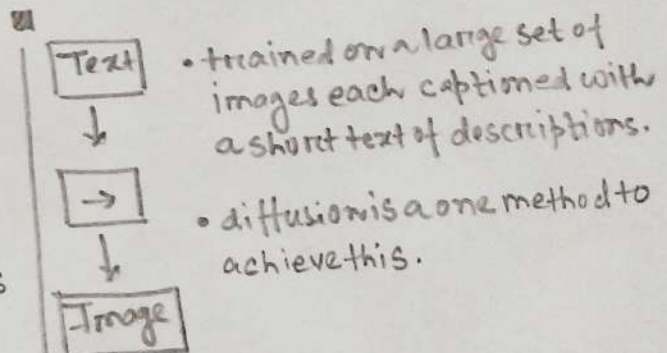 Text
• trained on a large set of
images each captioned with
a short text of descriptions.
→
• diffusion is a one method to
achieve this.
Image